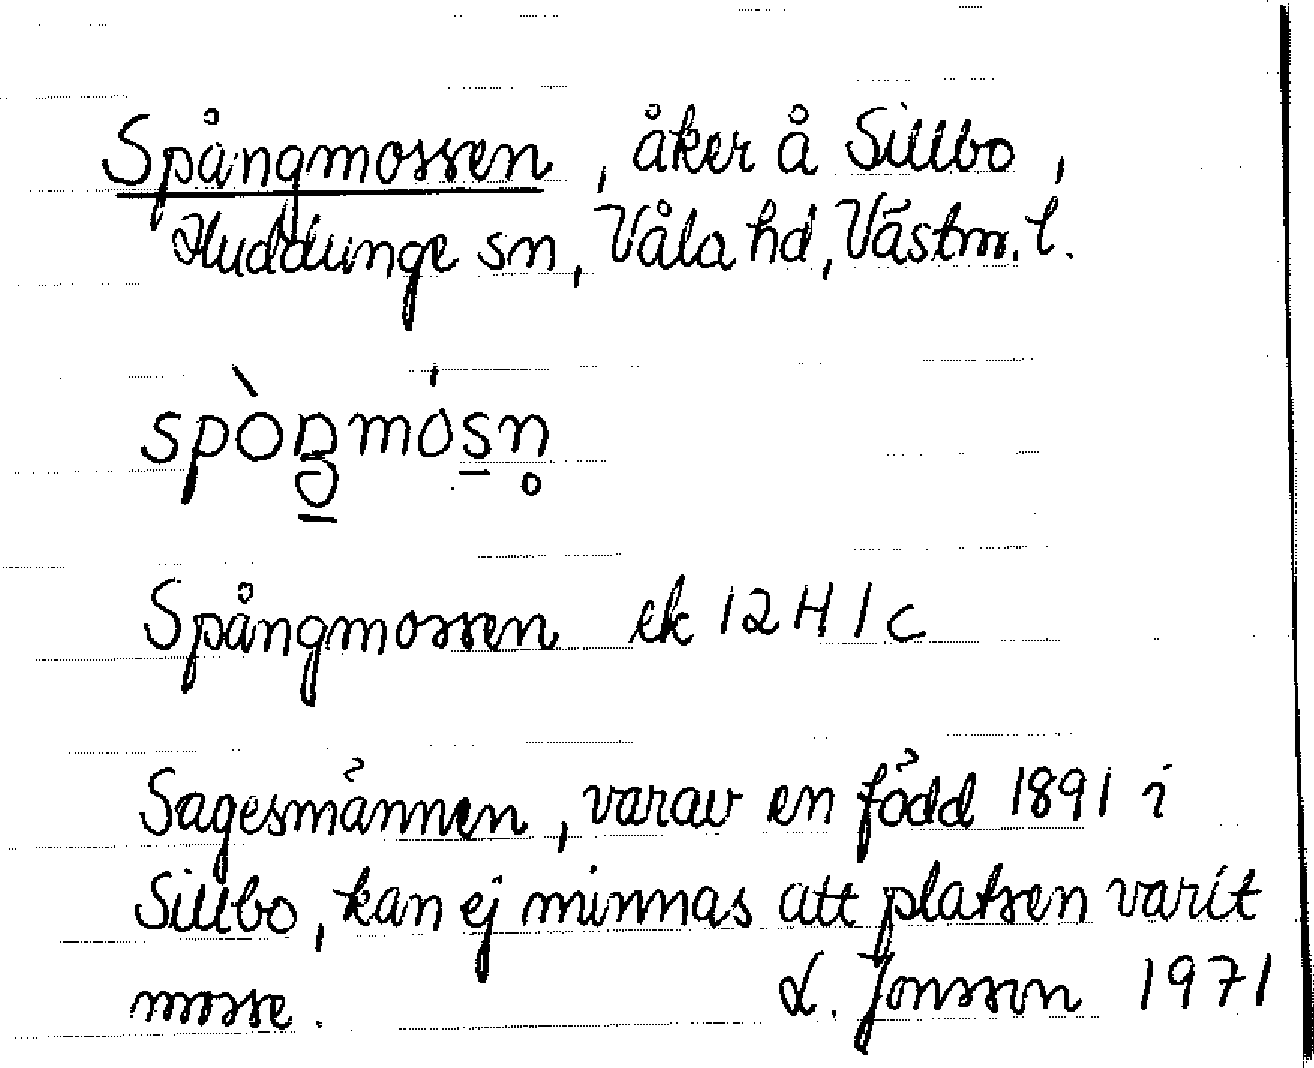 Spångmossen, åker å Sillbo,
Huddunge sn, Våla hd, Västm. l.
spòŋmósn̥
Spångmossen ek 12 H 1 c
Sagesmännen, varav en född 1891 i
Sillbo, kan ej minnas att platsen varit
mosse. L. Jonsson 1971